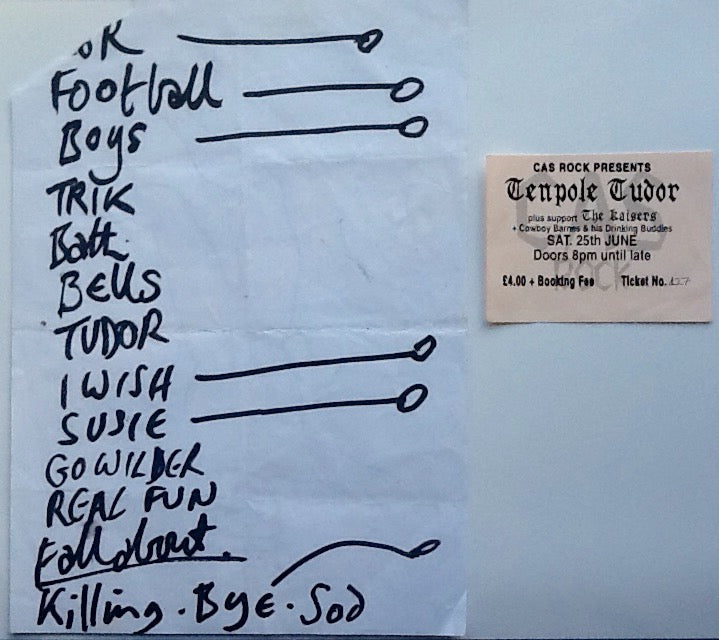 OK
Football
Boys
TRIK
Batt.
BELLS
TUDOR
I WISH
SUSIE
GO WILDER
REAL FUN
Fall about.
Killing. Bye. Sod
CAS ROCK PRESENTS
Tenpole Tudor
plus support The Kaisers
+ Cowboy Barnes & his Drinking Buddies
SAT. 25th JUNE
Doors 8pm until late
£4.00 + Booking Fee Ticket No. 127
CAS
ROCK